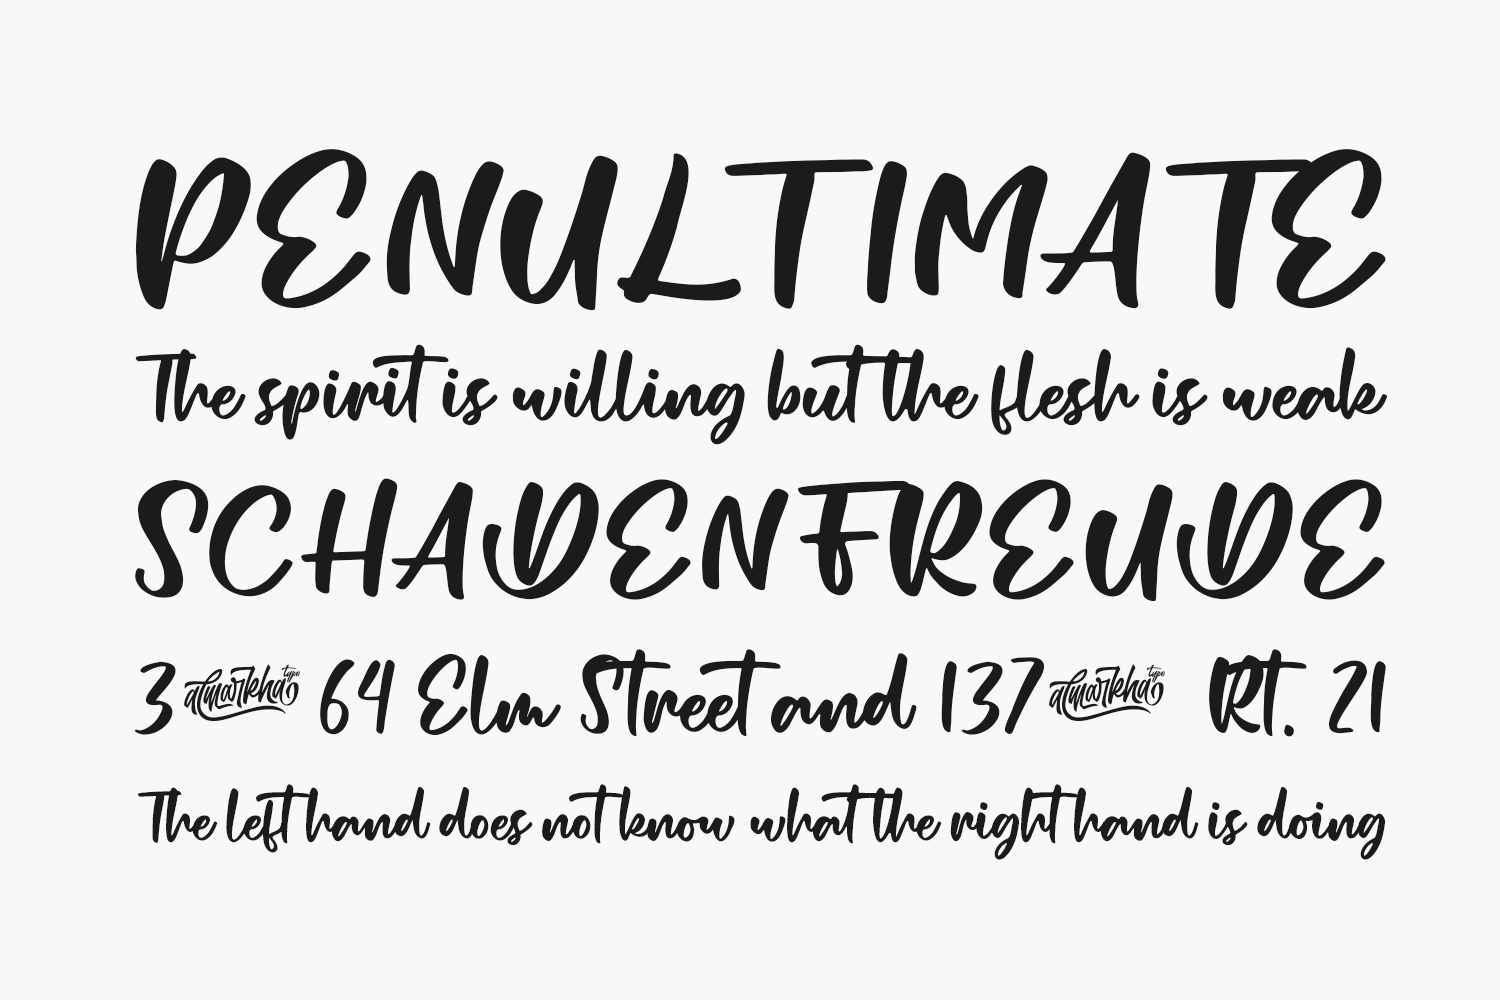 PENULTIMATE
The spirit is willing but the flesh is weak
SCHADENFREUDE
3 almarkha typo 64 Elm Street and 137 almarkha typo Rt. 21
The left hand does not know what the right hand is doing